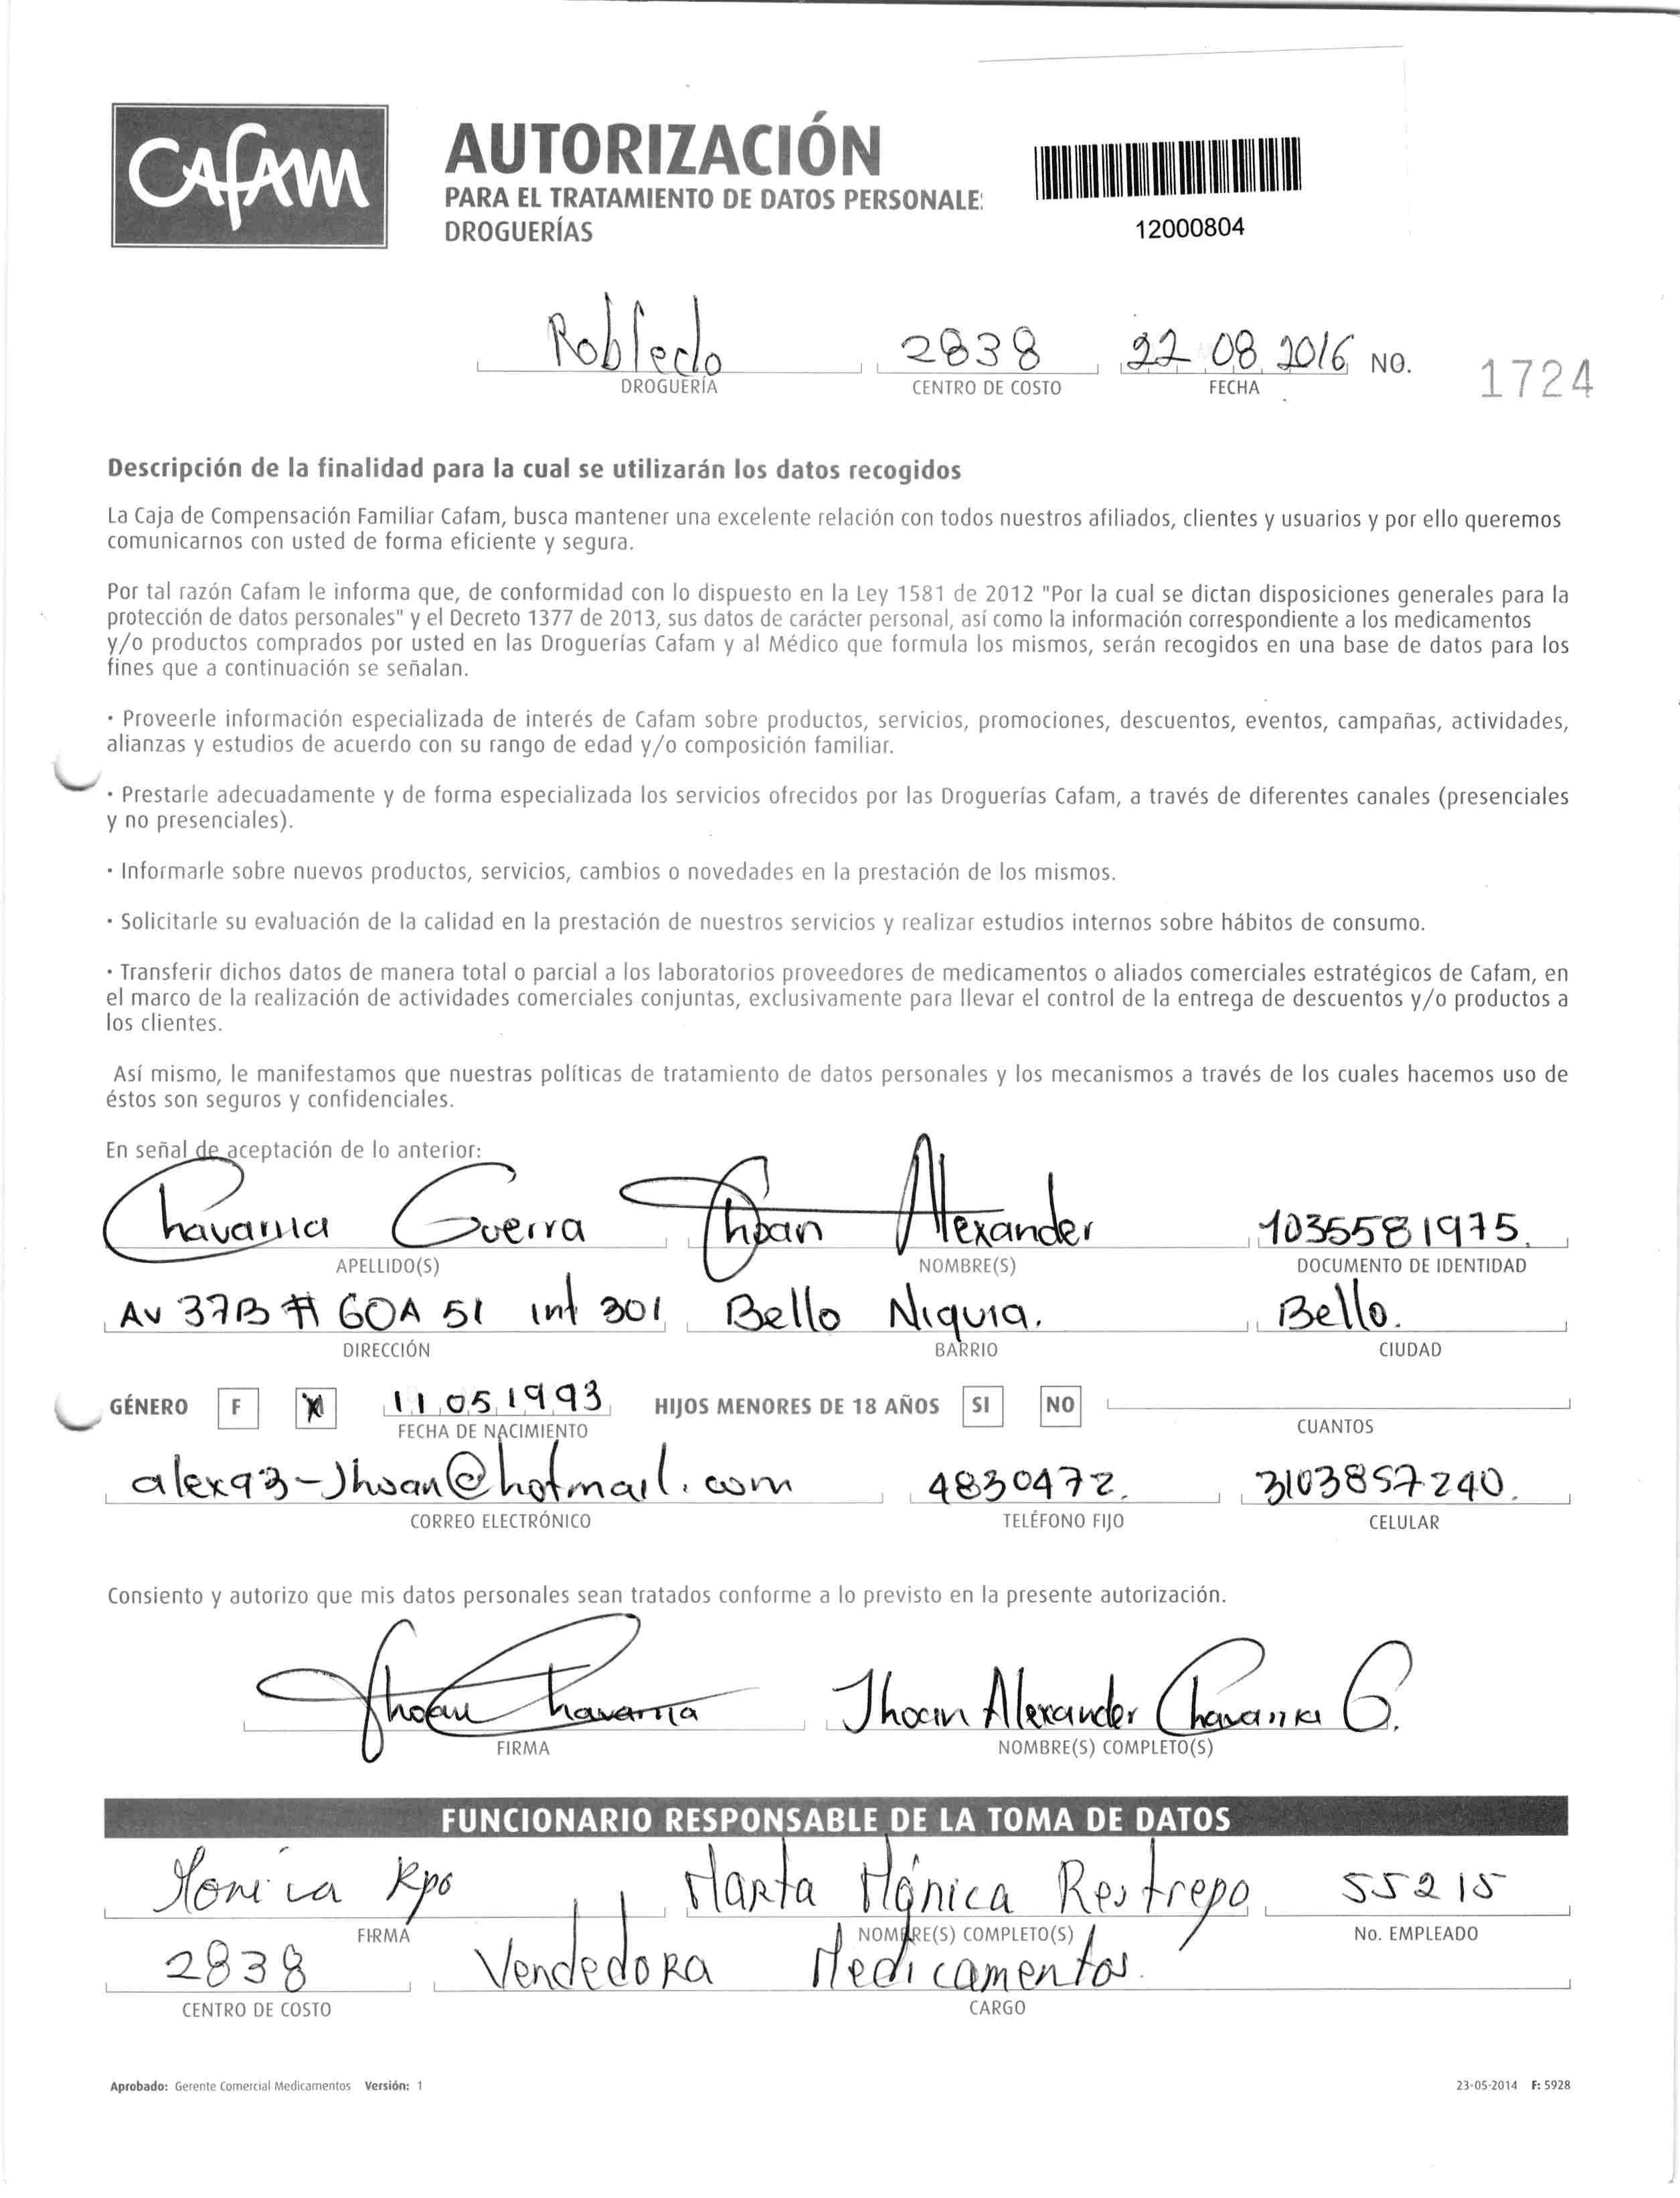 CAFAM
AUTORIZACIÓN
PARA EL TRATAMIENTO DE DATOS PERSONALE
DROGUERÍAS
12000804
Robledo 2838 22 08 2016 NO. 1724
DROGUERÍA CENTRO DE COSTO FECHA
Descripción de la finalidad para la cual se utilizarán los datos recogidos
La Caja de Compensación Familiar Cafam, busca mantener una excelente relación con todos nuestros afiliados, clientes y usuarios y por ello queremos
comunicarnos con usted de forma eficiente y segura.
Por tal razón Cafam le informa que, de conformidad con lo dispuesto en la Ley 1581 de 2012 "Por la cual se dictan disposiciones generales para la
protección de datos personales" y el Decreto 1377 de 2013, sus datos de carácter personal, así como la información correspondiente a los medicamentos
y/o productos comprados por usted en las Droguerías Cafam y al Médico que formula los mismos, serán recogidos en una base de datos para los
fines que a continuación se señalan.
· Proveerle información especializada de interés de Cafam sobre productos, servicios, promociones, descuentos, eventos, campañas, actividades,
alianzas y estudios de acuerdo con su rango de edad y/o composición familiar.
· Prestarle adecuadamente y de forma especializada los servicios ofrecidos por las Droguerías Cafam, a través de diferentes canales (presenciales
y no presenciales).
· Informarle sobre nuevos productos, servicios, cambios o novedades en la prestación de los mismos.
· Solicitarle su evaluación de la calidad en la prestación de nuestros servicios y realizar estudios internos sobre hábitos de consumo.
· Transferir dichos datos de manera total o parcial a los laboratorios proveedores de medicamentos o aliados comerciales estratégicos de Cafam, en
el marco de la realización de actividades comerciales conjuntas, exclusivamente para llevar el control de la entrega de descuentos y/o productos a
los clientes.
Así mismo, le manifestamos que nuestras políticas de tratamiento de datos personales y los mecanismos a través de los cuales hacemos uso de
éstos son seguros y confidenciales.
En señal de aceptación de lo anterior:
Chavarria Guerra Jhoan Alexander 1035581975.
APELLIDO(S) NOMBRE(S) DOCUMENTO DE IDENTIDAD
Av 37B # 60A 51 int 301 Bello Niquia. Bello.
DIRECCIÓN BARRIO CIUDAD
GÉNERO F X 11 05 1993 HIJOS MENORES DE 18 AÑOS SI NO
FECHA DE NACIMIENTO CUANTOS
alex93-Jhoan@hotmail.com 4830472. 3103857240.
CORREO ELECTRÓNICO TELÉFONO FIJO CELULAR
Consiento y autorizo que mis datos personales sean tratados conforme a lo previsto en la presente autorización.
Jhoan Chavarria Jhoan Alexander Chavarria G.
FIRMA NOMBRE(S) COMPLETO(S)
FUNCIONARIO RESPONSABLE DE LA TOMA DE DATOS
Monica Rpo Marta Mónica Restrepo 55215
FIRMA NOMBRE(S) COMPLETO(S) No. EMPLEADO
2838 Vendedora Medicamentos.
CENTRO DE COSTO CARGO
Aprobado: Gerente Comercial Medicamentos Versión: 1 23-05-2014 F: 5928